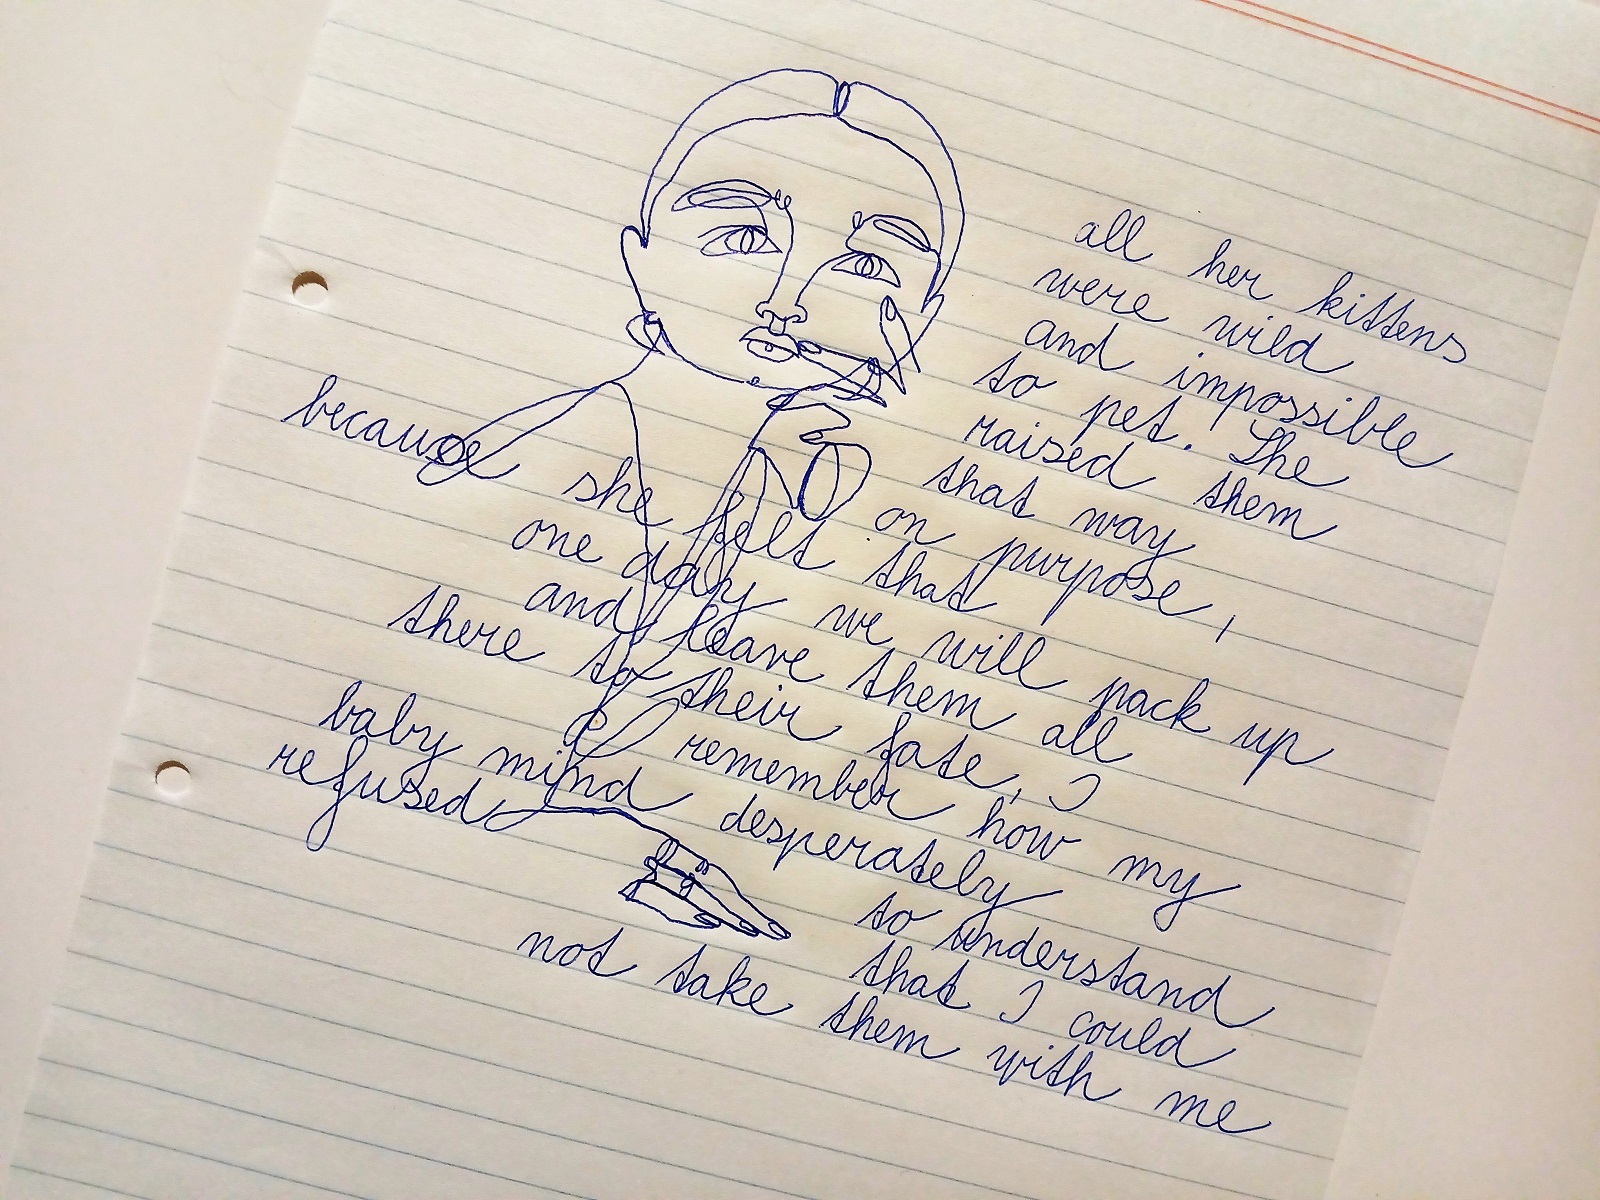 all her kittens
were wild
and impossible
to pet. She
raised them
that way
on purpose,
because she felt that
one day we will pack up
and leave them all
there to their fate, I
remember how my
baby mind desperately
refused to understand
that I could
not take them with me